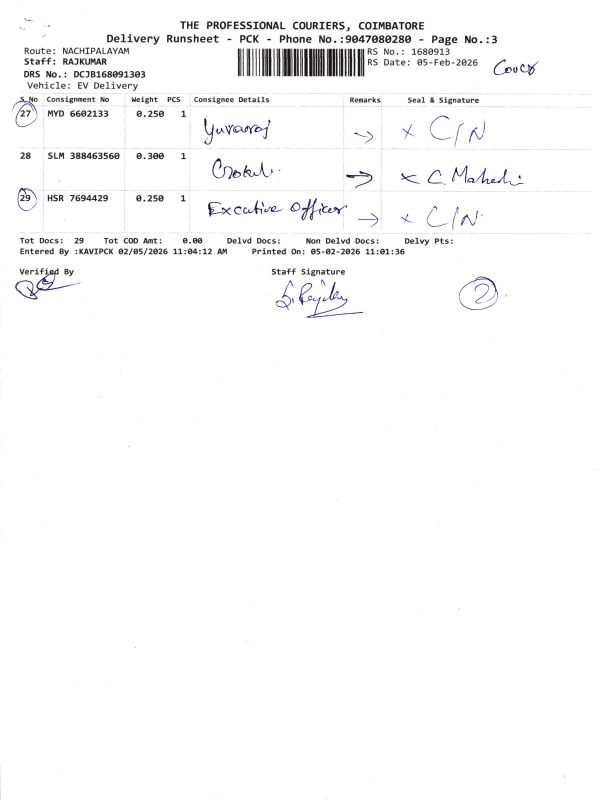 THE PROFESSIONAL COURIERS, COIMBATORE
Delivery Runsheet - PCK - Phone No.:9047080280 - Page No.:3
Route: NACHIPALAYAM
RS No.: 1680913
Staff: RAJKUMAR
RS Date: 05-Feb-2026
DRS No.: DCJB168091303
Vehicle: EV Delivery
S.No Consignment No Weight PCS Consignee Details Remarks Seal & Signature
27 MYD 6602133 0.250 1 Yuvaraj → x C/N
28 SLM 388463560 0.300 1 → x C. Mahesh
29 HSR 7694429 0.250 1 Excative officer → x C/N
Tot Docs: 29 Tot COD Amt: 0.00 Delvd Docs: Non Delvd Docs: Delvy Pts:
Entered By :KAVIPCK 02/05/2026 11:04:12 AM Printed On: 05-02-2026 11:01:36
Verified By Staff Signature
2